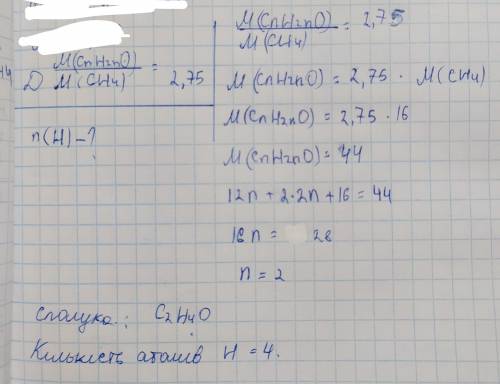 M(CnH2nO)
Д M(CH4) = 2,75
n(H) – ?
M(CnH2nO)
M(CH4) = 2,75
M(CnH2nO) = 2,75 · M(CH4)
M(CnH2nO) = 2,75 · 16
M(CnH2nO) = 44
12n + 2·2n + 16 = 44
n = 2
сполука: C2H4O
Кількість атомів H = 4.